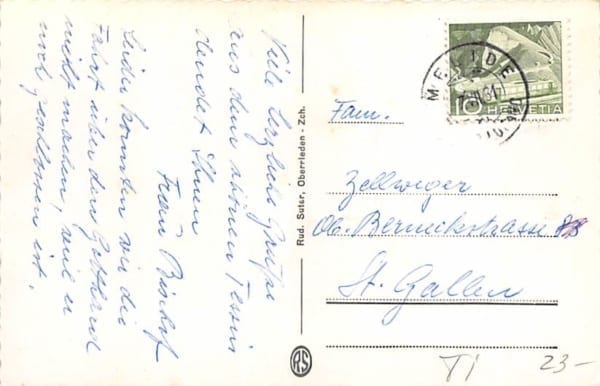 Viele herzliche Grüsse
aus dem schönen Tessin
sendet Ihnen
Frau Bischof
Leider konnten wir die
Fahrt über den Gotthard
nicht machen, weil er
noch geschlossen ist.
Rud. Suter, Oberrieden - Zch.
RS
MELIDE
10 HELVETIA
Fam.
Zellweger
Ob. Berneckstrasse
St. Gallen
TI 23-